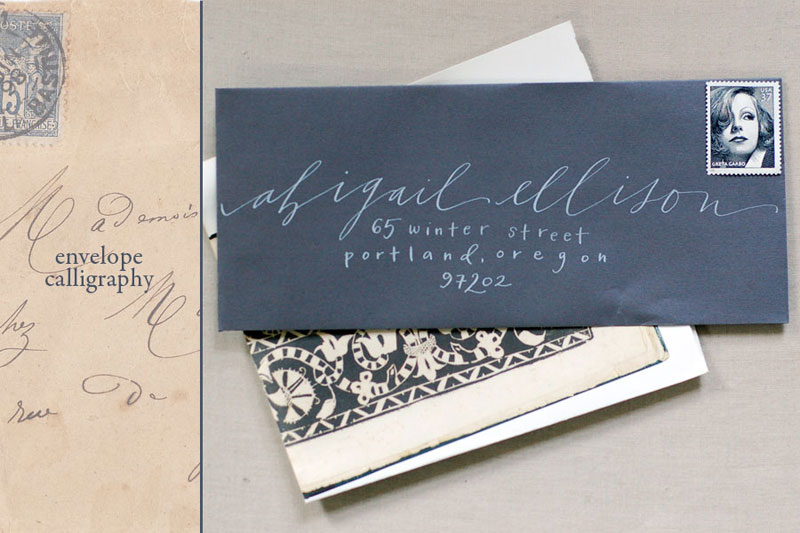 POSTE
15
Mademois
envelope
calligraphy
chez
rue de
USA
37
GRETA GARBO
abigail ellison
65 winter street
portland, oregon
97202